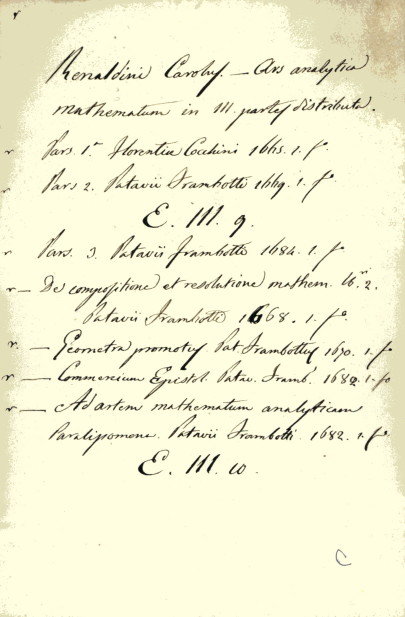 Renaldini Carolus. — Ars analytica
mathematum in III. partes distributa.
r Pars. 1ª Florentiæ Cocchini 1665. 1. fº
r Pars 2. Patavii Frambotti 1669. 1. fº
E. III. 9.
r Pars. 3. Patavii Frambotti 1684. 1. fº
r — De compositione et resolutione mathem. lib. 2.
Patavii Frambotti 1668. 1. fº
r. — Geometra promotus Pat. Frambottus 1670. 1. fº
r — Commercium Epistol. Patav. Framb. 1682. 1. fº
r — Ad artem mathematum analyticam
Paralipomena. Patavii Frambotti. 1682. 1. fº
E. III. 10.
C